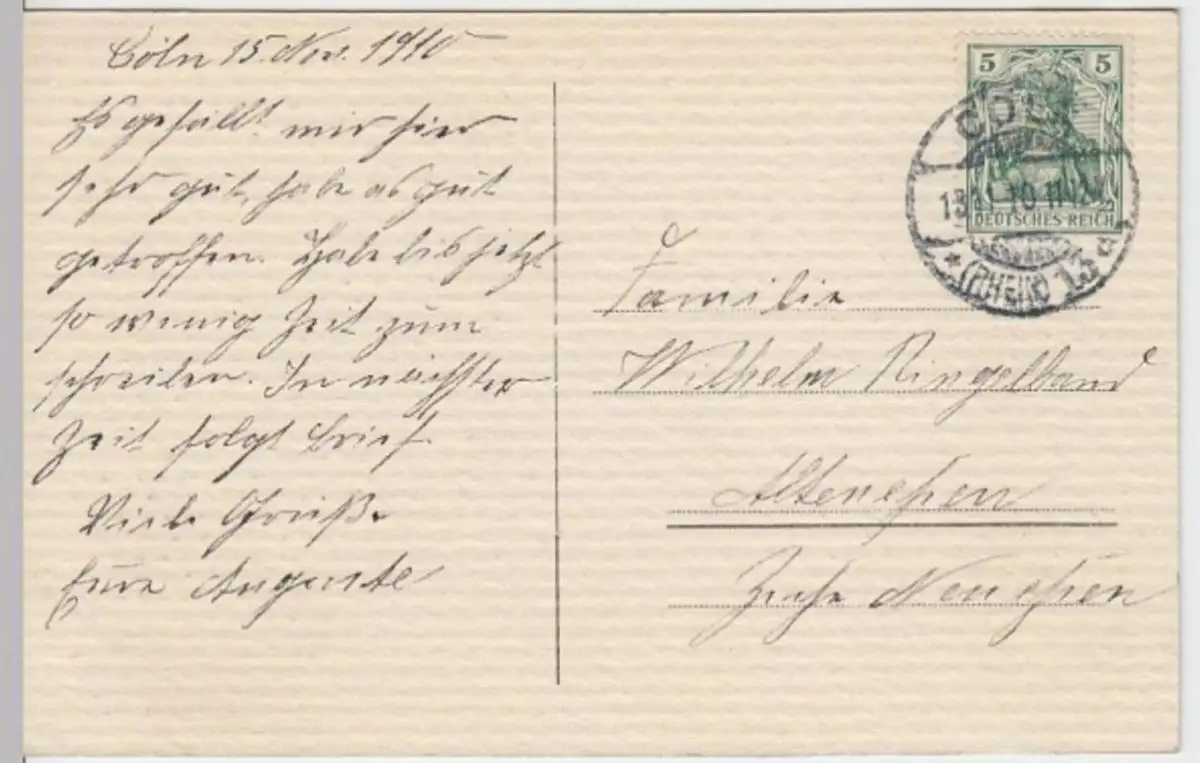 Cöln 15. Nov. 1910
Es gefällt mir hier
sehr gut, habe es gut
getroffen. Habe bis jetzt
so wenig Zeit zum
schreiben. In nächster
Zeit folgt Brief.
Viele Grüße
Eure Auguste
5 5
DEUTSCHES REICH
CÖLN
11.10.11-12
(RHEIN) 13
Familie
Wilhelm Ringelband
Altenessen
Zeche Neuessen